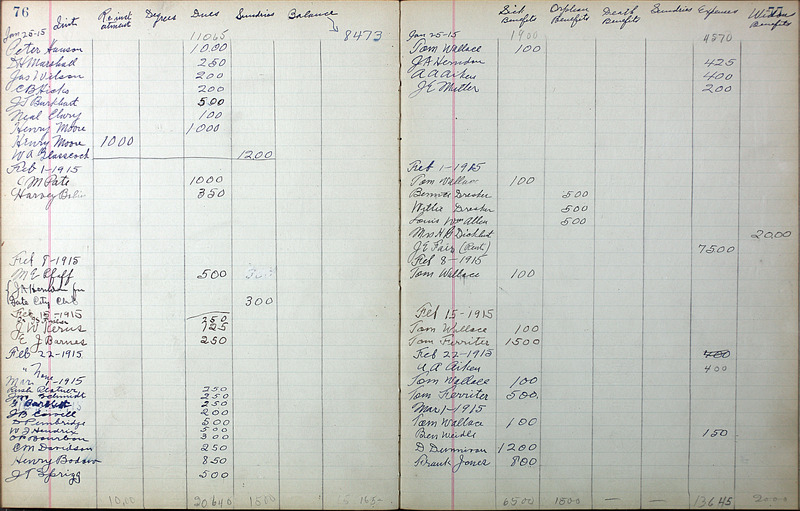 76
Init Reinstatment Degrees Dues Sundries Balance
Jan 25-15 11065 8473
Peter Hanson 1000
D H Marshall 250
Jas Wilson 200
C B Hicks 200
J T Burkhart 500
Neal Clary 100
Henry Moore 1000
Henry Moore 1000
W A Glasscock 1200
Feb 1-1915
C M Pate 1000
Harvey 350
Feb 8-1915
M E Cluff 500
J A Herndon for
Gate City Club 300
Feb 15-1915
250
J W Kerus 125
E J Barnes 250
Feb 22-1915
" None
Mar 1-1915
250
Schmidt 250
Bartlett 250
J B Covell 200
D Pembridge 500
W J Hendrix 500
O F Bourbon 300
C M Davidson 250
Henry Bodow 850
J T Sprigg 500
1000 20640 1500 165-
77
Sick Benefits Orphan Benefits Death Benefits Sundries Expenses Widow Benefits
Jan 25-15 1900 4870
Tom Wallace 100
J A Herndon 425
A A Aiken 400
J E Miller 200
Feb 1-1915
Tom Wallace 100
Bennie Dresher 500
Willie Dresher 500
Louis Wm Allen 500
Mrs H B 2000
J E Fair (Rent) 7500
Feb 8-1915
Tom Wallace 100
Feb 15-1915
Tom Wallace 100
Tom Ferriter 1500
Feb 22-1915
A A Aiken 400
Tom Wallace 100
Tom Ferriter 500
Mar 1-1915
Tom Wallace 100
Ben 150
D Dunnivan 1200
Frank Jones 800
6500 1500 — — 13645 2000